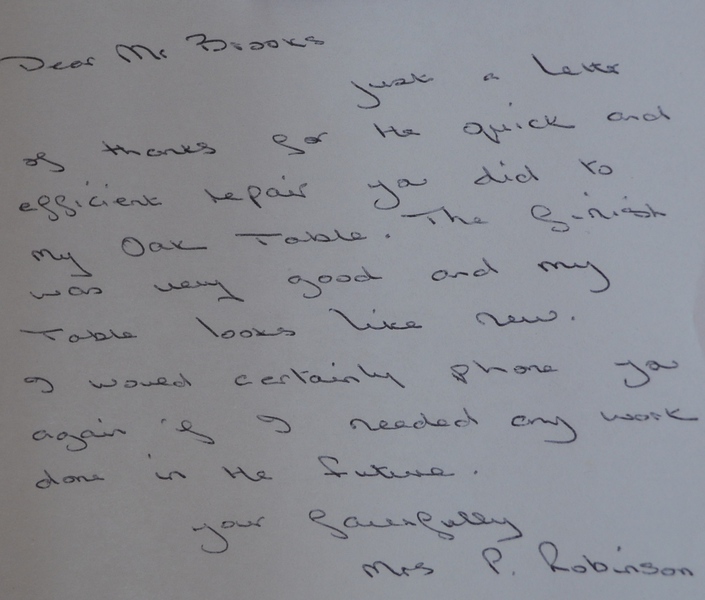 Dear Mr Brooks
just a letter
of thanks for the quick and
efficient repair you did to
my Oak Table. The finish
was very good and my
Table looks like new.
I would certainly phone you
again if I needed any work
done in the future.
your faithfully
Mrs P. Robinson